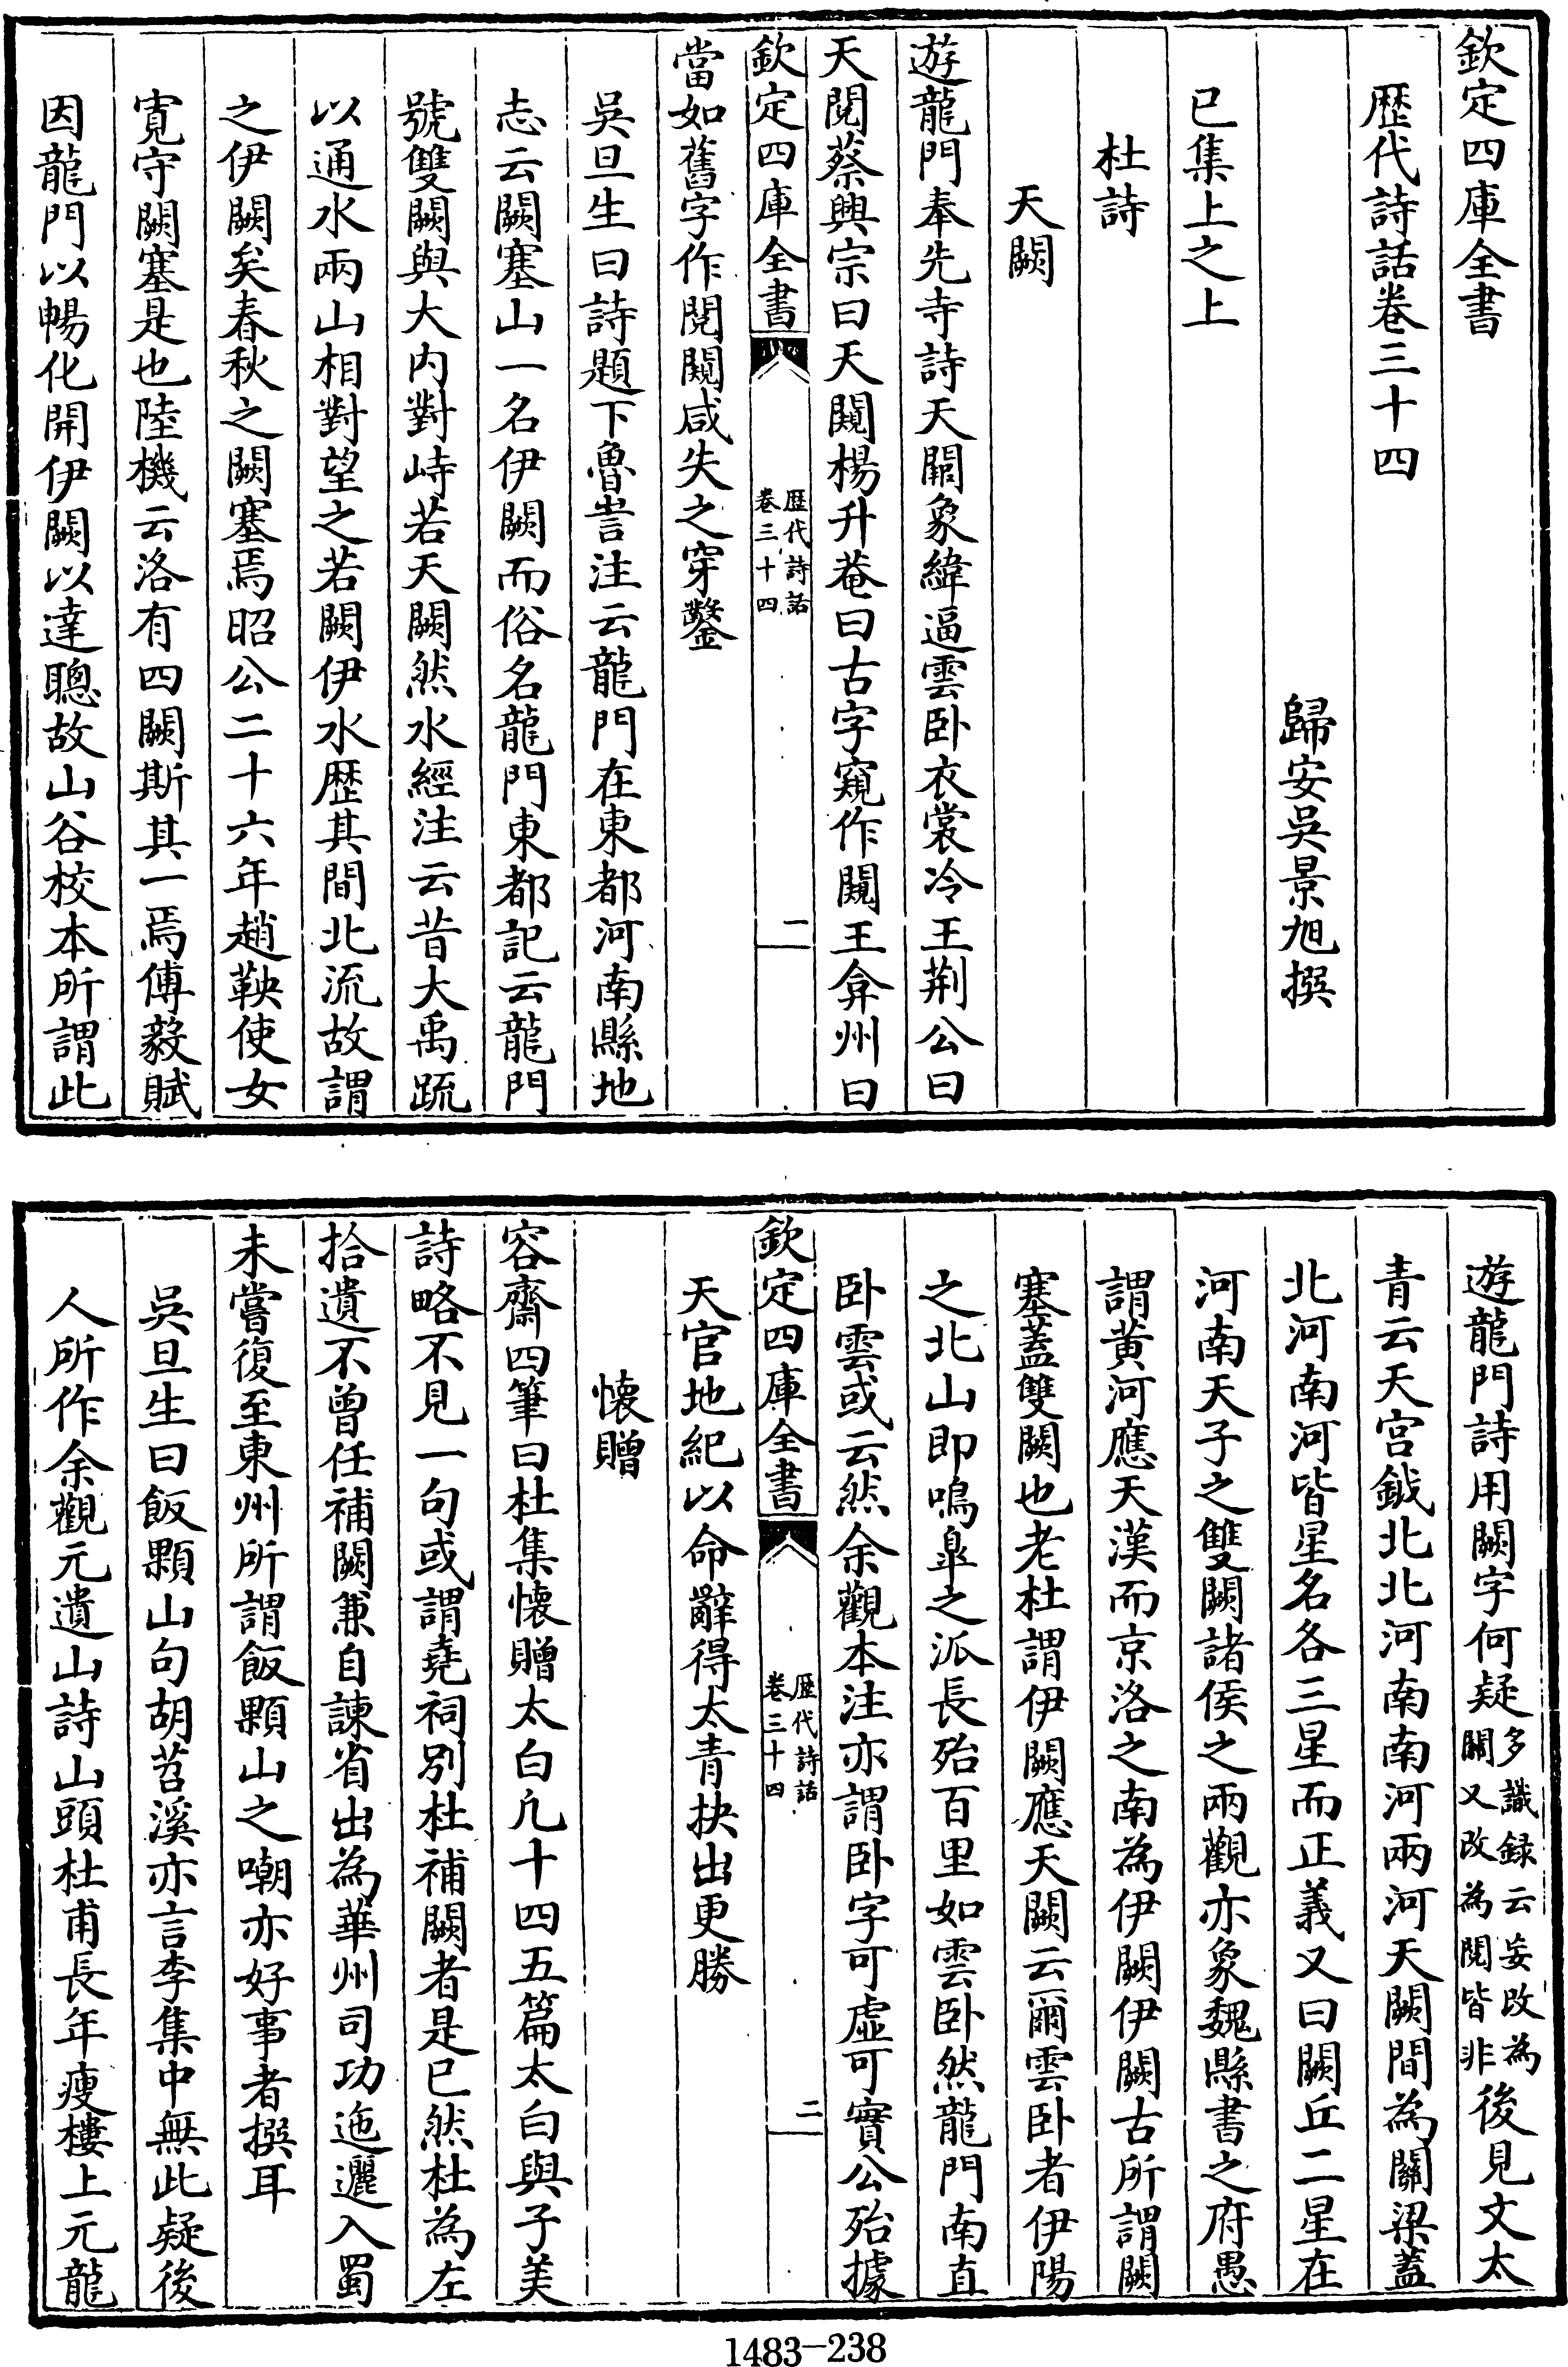 欽定四庫全書
歷代詩話卷三十四
歸安吳景旭撰
已集上之上
杜詩
天闕
遊龍門奉先寺詩天闕象緯逼雲卧衣裳冷王荆公曰
天閱蔡興宗曰天闚楊升菴曰古字窺作闚王弇州曰
欽定四庫全書
歷代詩話
卷三十四
一
當如舊字作閱闚咸失之穿鑿
吳旦生曰詩題下魯訔注云龍門在東都河南縣地
志云闕塞山一名伊闕而俗名龍門東都記云龍門
號雙闕與大内對峙若天闕然水經注云昔大禹疏
以通水兩山相對望之若闕伊水歷其間北流故謂
之伊闕矣春秋之闕塞焉昭公二十六年趙鞅使女
寛守闕塞是也陸機云洛有四闕斯其一焉傅毅賦
因龍門以暢化開伊闕以達聰故山谷校本所謂此
遊龍門詩用闕字何疑多識録云妄改為
闚又改為閱皆非後見文太
青云天宫鉞北北河南南河兩河天闕間為關梁蓋
北河南河皆星名各三星而正義又曰闕丘二星在
河南天子之雙闕諸侯之兩觀亦象魏縣書之府愚
謂黄河應天漢而京洛之南為伊闕伊闕古所謂闕
塞蓋雙闕也老杜謂伊闕應天闕云爾雲卧者伊陽
之北山即鳴臯之派長殆百里如雲卧然龍門南直
卧雲或云然余觀本注亦謂卧字可虚可實公殆據
欽定四庫全書
歷代詩話
卷三十四
二
天官地紀以命辭得太青抉出更勝
懐贈
容齋四筆曰杜集懐贈太白凢十四五篇太白與子美
詩略不見一句或謂堯祠别杜補闕者是已然杜為左
拾遺不曾任補闕兼自諫省出為華州司功迤邐入蜀
未嘗復至東州所謂飯顆山之嘲亦好事者撰耳
吳旦生曰飯顆山句胡苕溪亦言李集中無此疑後
人所作余觀元遺山詩山頭杜甫長年瘦樓上元龍
1483-238